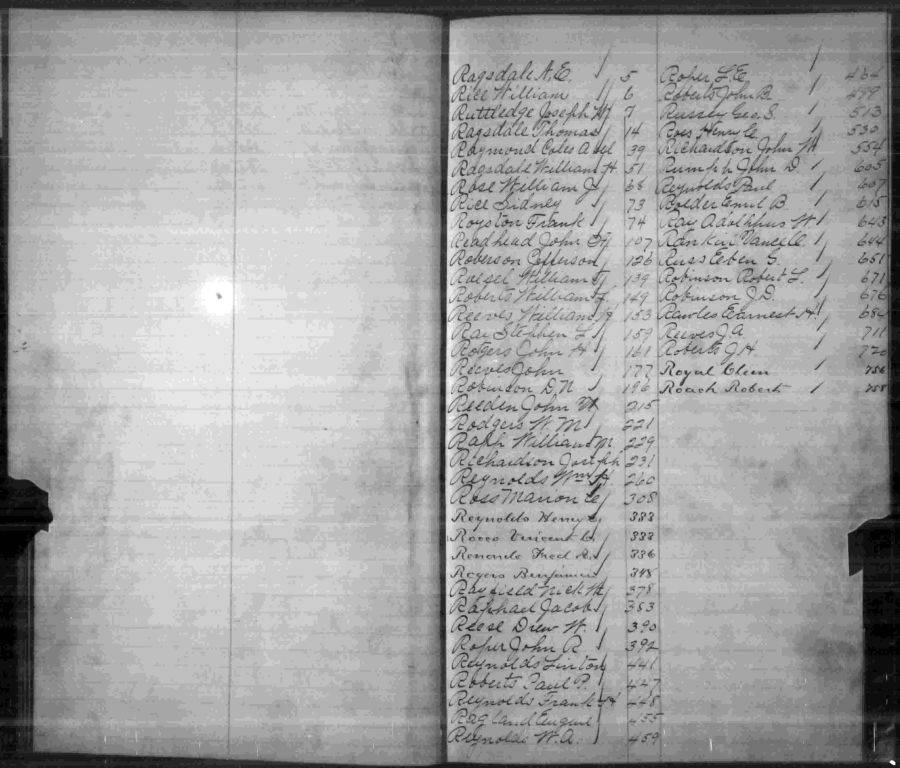 Ragsdale A.E. 5
Rice William 6
Ruttledge Joseph W 7
Ragsdale Thomas 14
Raymond Coles A 39
Ragsdale William H. 51
Rose William J 68
Rice Sidney 73
Royston Frank 74
Readhead John 107
Roberson Jefferson 126
Roesel William F 139
Roberts William F. 149
Reeves William 153
Rai Stephen L 159
Rotgers John H 161
Reeves John 177
Robinson D.N 196
Reeden John W 215
Rodgers W. M 221
Raph William M 229
Richardson Joseph 231
Reynolds Wm H 260
Ross Marion C 308
Reynolds Henry 333
Rocco Vincent 333
Fred 336
Rogers Benjamin 348
Rayfield Nick W 378
Raphael Jacob 383
Reese Drew W. 390
Roper John R 392
Reynolds Linton 441
Roberts Paul P. 447
Reynolds Frank H 448
Ragland August 455
Reynolds W.A. 459
Roper L.E. 464
Roberts John B. 499
Russey Geo. S. 513
Ross Henry C 530
Richardson John W 554
Rumph John D. 605
Reynolds Paul 607
Roeder Emil B. 615
Ray Adolphus W 643
Rankin Vance C. 644
Russ Eeben S. 651
Robinson Robert L. 671
Robinson J.D. 676
Rawles Earnest H. 684
Reeves J A 711
Roberts J.H. 720
Royal Cleen 756
Roach Robert 758